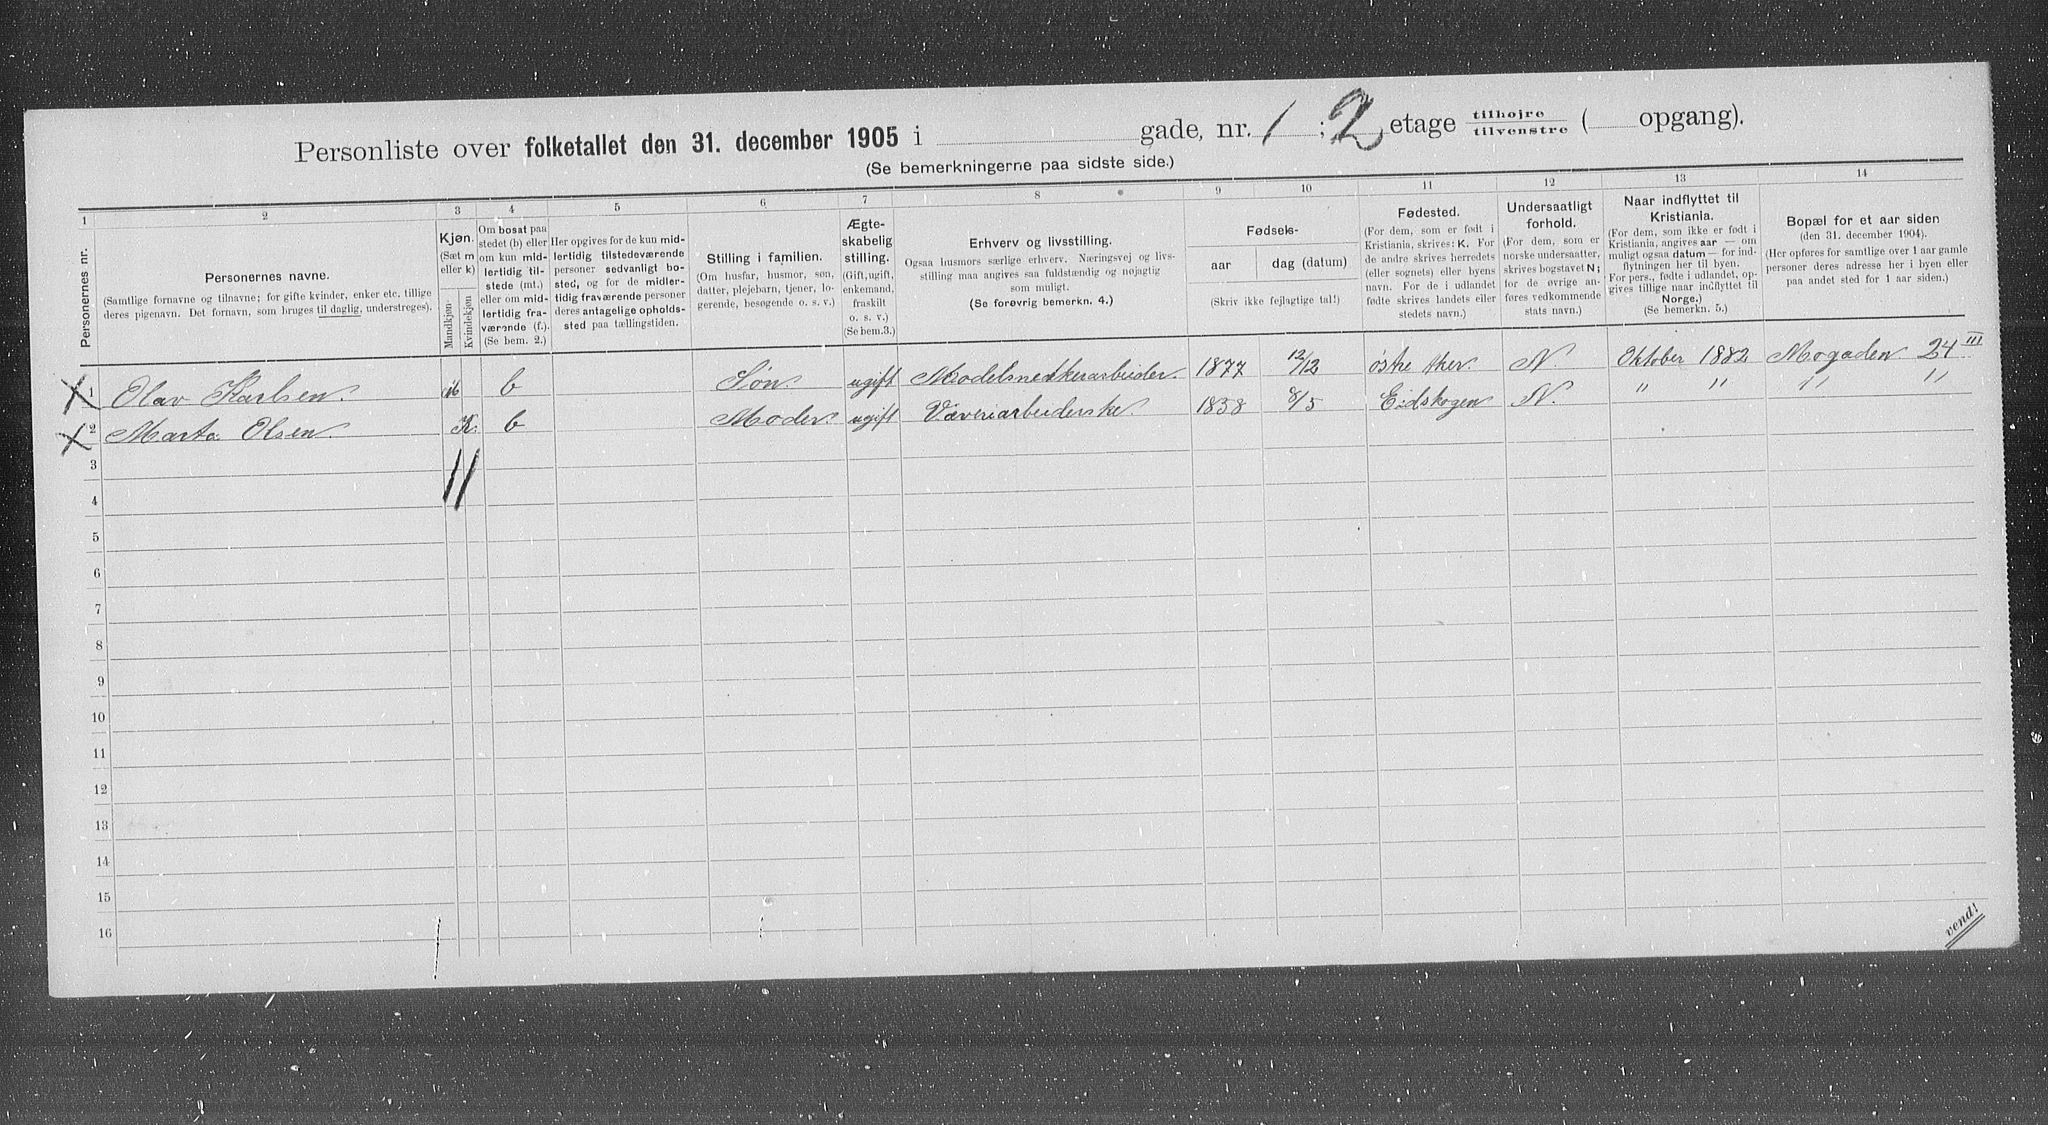 Personliste over folketallet den 31. december 1905 i gade, nr. 1 ; 2 etage tilhøjre / tilvenstre ( opgang).
(Se bemerkningerne paa sidste side.)
1 2 3 4 5 6 7 8 9 10 11 12 13 14
Personernes nr.
Personernes navne.
(Samtlige fornavne og tilnavne; for gifte kvinder, enker etc. tillige
deres pigenavn. Det fornavn, som bruges til daglig, understreges).
Kjøn.
(Sæt m
eller k)
Mandkjøn.
Kvindekjøn
Om bosat paa
stedet (b) eller
om kun mid-
lertidig til-
stede (mt.)
eller om mid-
lertidig fra-
værende (f.).
(Se bem. 2.)
Her opgives for de kun mid-
lertidig tilstedeværende
personer sedvanlig bo-
sted, og for de midler-
tidig fraværende personer
deres antagelige opholds-
sted paa tællingstiden.
Stilling i familien.
(Om husfar, husmor, søn,
datter, plejebarn, tjener, lo-
gerende, besøgende o. s. v.)
Ægte-
skabelig
stilling.
(Gift, ugift,
enkemand,
fraskilt
o. s. v.)
(Se bem.3.)
Erhverv og livsstilling.
Ogsaa husmors særlige erhverv. Næringsvej og livs-
stilling maa angives saa fuldstændig og nøjagtig
som muligt.
(Se forøvrig bemerkn. 4.)
Fødsels-
aar dag (datum)
(Skriv ikke fejlagtige tal!)
Fødested.
(For dem, som er født i
Kristiania, skrives: K. For
de andre skrives herredets
(eller sognets) eller byens
navn. For de i udlandet
fødte skrives landets eller
stedets navn.)
Undersaatligt
forhold.
(For dem, som er
norske undersaatter,
skrives bogstavet N;
for de øvrige an-
føres vedkommende
stats navn.)
Naar indflyttet til
Kristiania.
(For dem, som ikke er født i
Kristiania, angives aar — om
muligt ogsaa datum — for ind-
flytningen her til byen.
For pers., fødte i udlandet, op-
gives tillige naar indflyttet til
Norge.)
(Se bemerkn. 5.)
Bopæl for et aar siden
(den 31. december 1904).
(Her opføres for samtlige over 1 aar gamle
personer deres adresse her i byen eller
paa andet sted for 1 aar siden.)
1 Olav Karlsen. M b Søn. ugift 1877 12/12 østre Aker. N. Oktober 1882 24 III
2 Marta Olsen. K. b Moder. ugift Væveriarbeiderske. 1838 8/5 Eidskogen N. " " " "
3
4
5
6
7
8
9
10
11
12
13
14
15
16
vend!